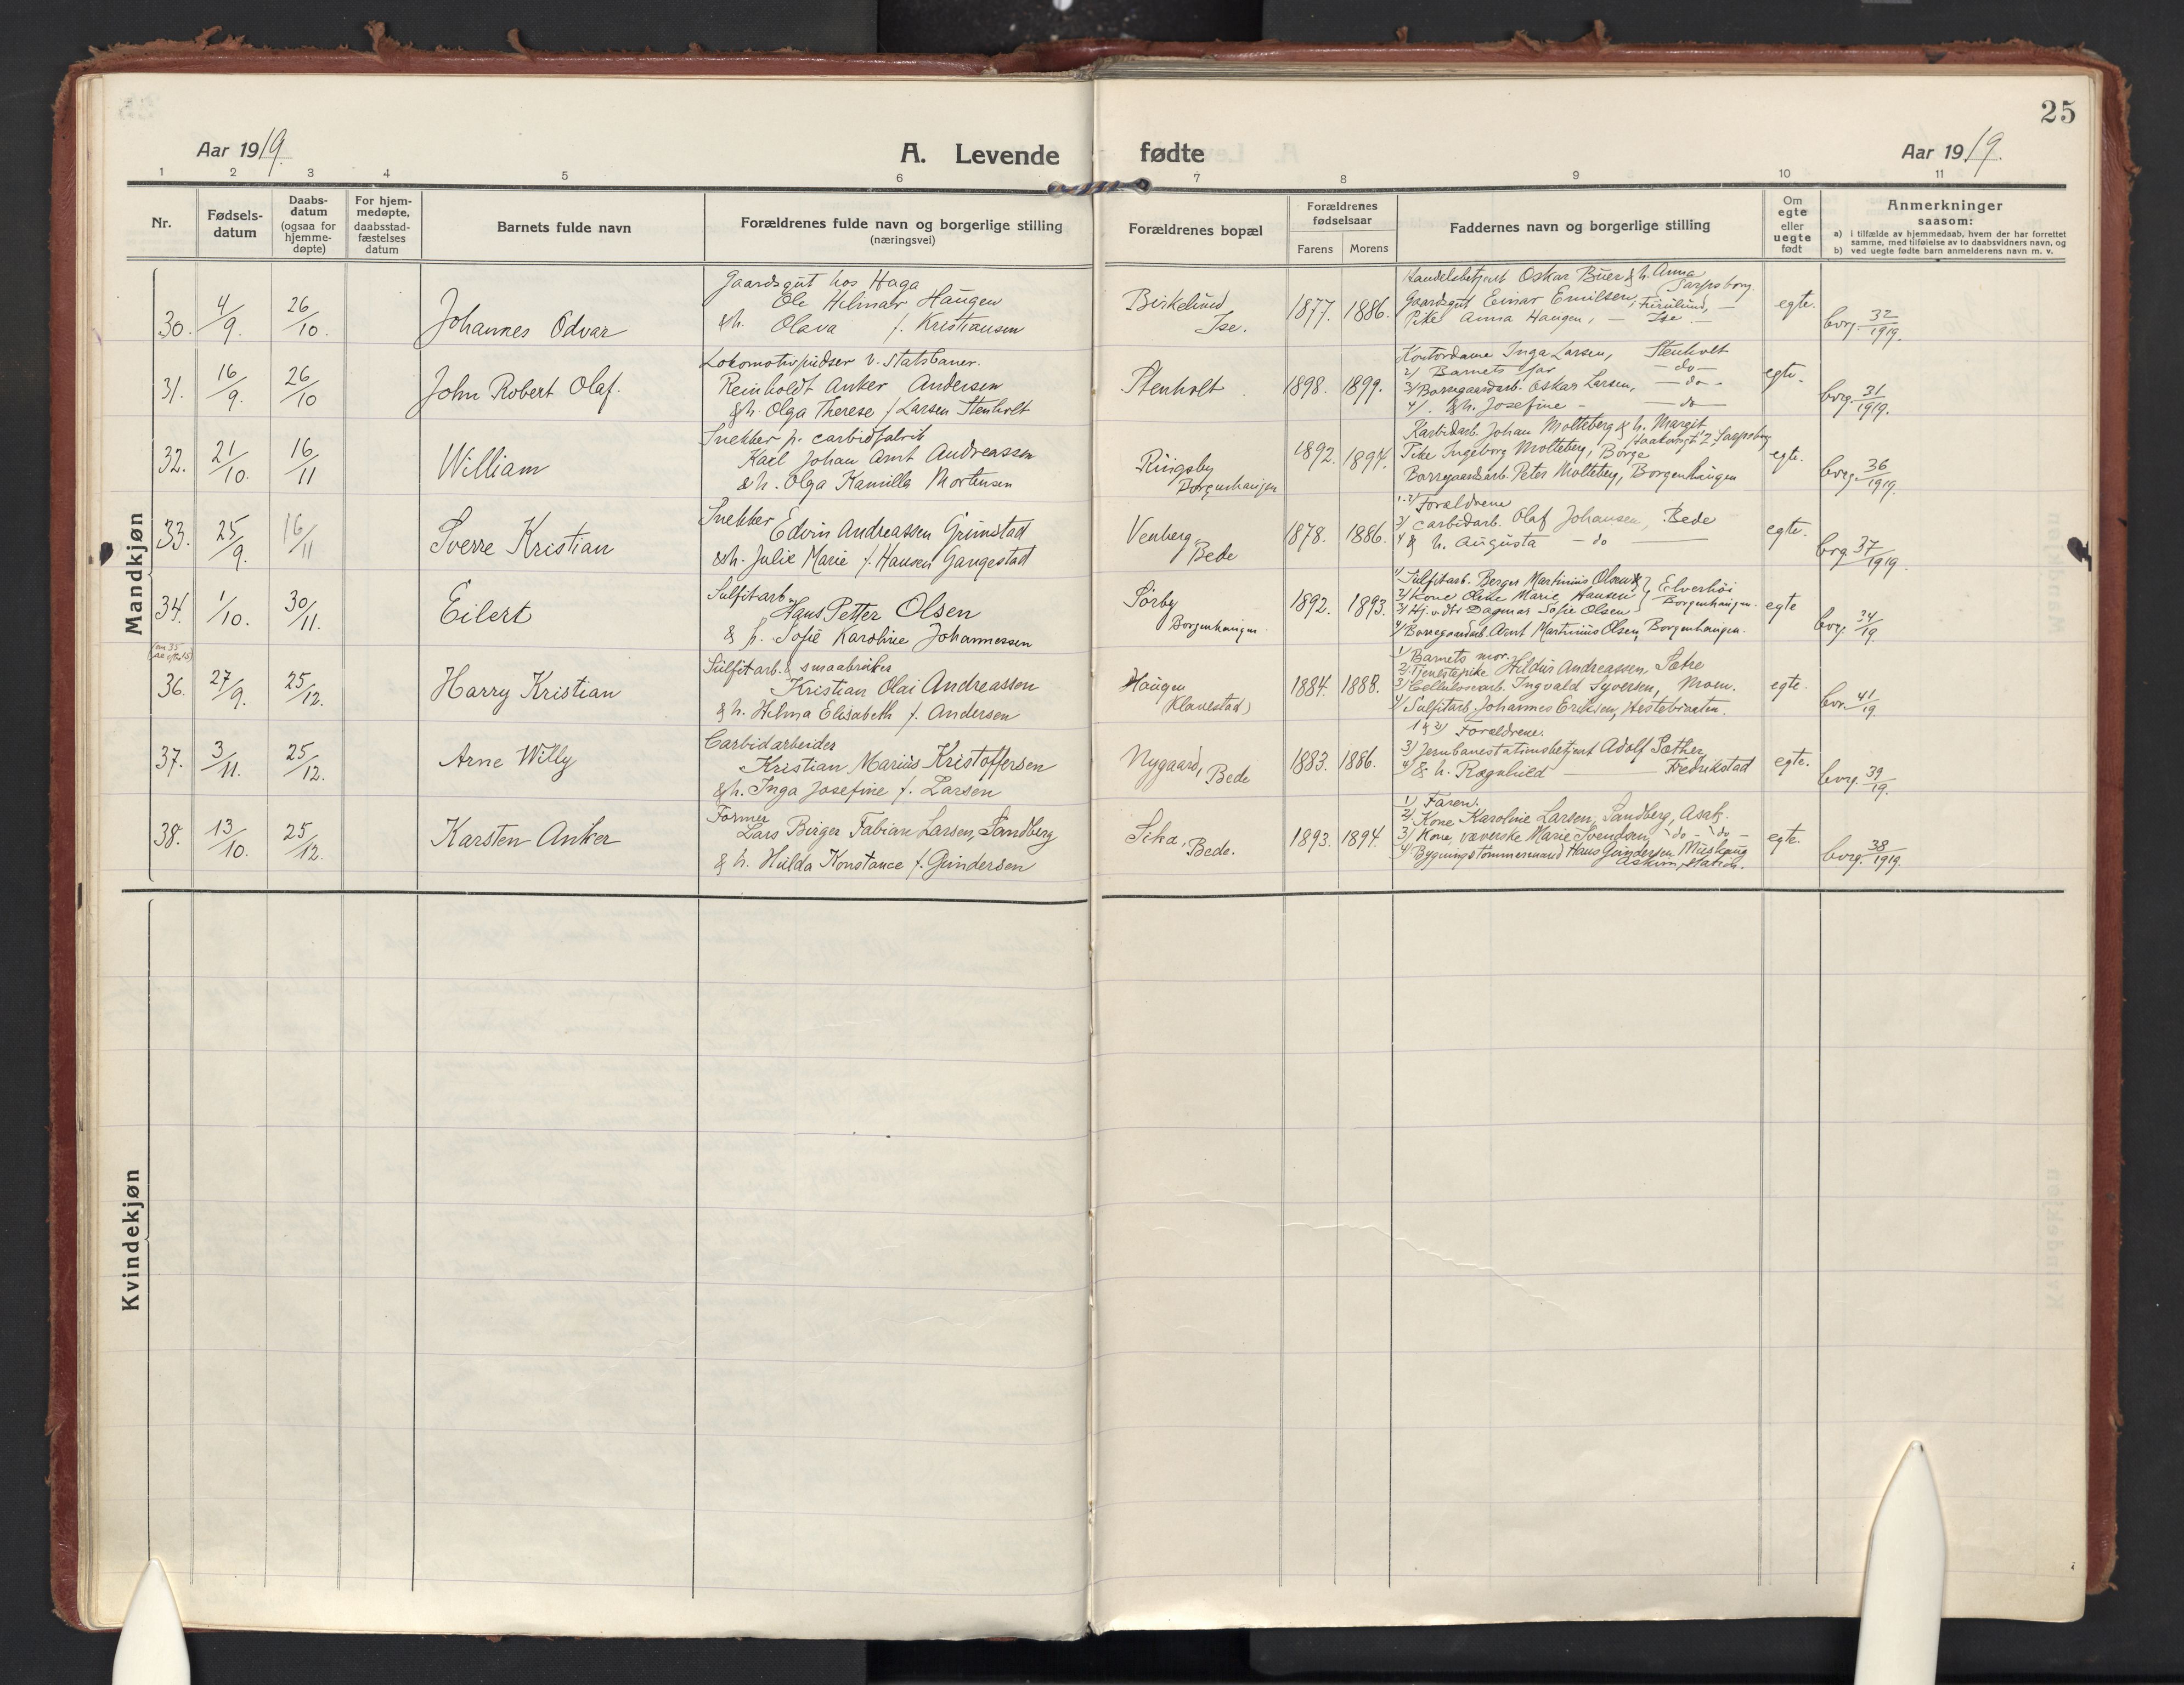 25
Aar 1919.
A. Levende fødte
Aar 1919.
1 2 3 4 5 6 7 8 9 10 11
Nr.
Fødsels-
datum
Daabs-
datum
(ogsaa for
hjemme-
døpte)
For hjem-
medøpte,
daabsstad-
fæstelses
datum
Barnets fulde navn
Forældrenes fulde navn og borgerlige stilling
(næringsvei)
Forældrenes bopæl
Forældrenes
fødselsaar
Farens Morens
Faddernes navn og borgerlige stilling
Om
egte
eller
uegte
født
Anmerkninger
saasom:
a) i tilfælde av hjemmedaab, hvem der har forrettet
samme, med tilføielse av to daabsvidners navn, og
b) ved uegte fødte barn anmelderens navn m. v.
Mandkjøn
30. 4/9. 26/10. Johannes Odvar
Gaardsgut hos Haga
Ole Hilmar Haugen
& h. Olava f. Kristiansen
Birkelund
Ise.
1877. 1886.
Handelsbetjent Oskar Buer & h. Anna
Sarpsborg.
Gaardsgut Einar Emilsen, Furulund, —
Pike Anna Haugen, — Ise —
egte.
borg. 32/1919.
31. 16/9. 26/10 John Robert Olaf.
Lokomotivpudser v. Statsbaner.
Reinholdt Anker Andersen
& h. Olga Therese f. Larsen Stenholt
Stenholt.
1898. 1899.
Kontordame Inga Larsen, Stenholt
2/ Barnets far — do —
3/ Borregaardarb. Oskar Larsen, — do —
4/. & h. Josefine - — do —
egte.
borg. 31/1919.
32. 21/10. 16/11 William
Snekker p. carbidfabrik
Karl Johan Arnt Andreassen
& h. Olga Kamilla Mortensen
Ringsby
Borgenhaugen
1892. 1894.
Karbidarb. Johan Molteberg & h. Margit
Pike Ingeborg Molteberg, Borge
Borregaardsarb. Peter Molteberg, Borgenhaugen
egte.
borg. 36/1919.
33. 25/9. 16/11 Sverre Kristian
Snekker
Edvin Andreassen Grimstad
& h. Julie Marie f. Hansen Gangestad
Venberg,
Bede
1878. 1886.
1-2/ Forældrene
3/ Carbidarb. Olaf Johansen, Bede
4 & h. Augusta — do —
egte.
borg. 37/1919.
34. 1/10. 30/11. Eilert
Sulfitarb.
Hans Petter Olsen
& h. Sofie Karoline Johannessen
Sørby
Borgenhaugen.
1892. 1893.
1/ Sulfitarb. Berger Martinius Olsen &
2/ Kone Oline Marie Hansen Elverhøi
3/ Hj. v. dtr Dagmar Sofie Olsen Borgenhaugen.
4/ Borregaardarb. Arnt Martinius Olsen, Borgenhaugen.
egte
borg. 34/19.
36. 27/9. 25/12. Harry Kristian
Sulfitarb. & smaabruker
Kristian Olai Andreassen
& h. Hilma Elisabeth f. Andersen
Haugen
(Klavestad)
1884. 1888.
1/ Barnets mor.
2/ Tjenestepike Hildur Andreassen, Sætre
3/ Cellulosearb. Ingvald Syversen, Moen.
4/ Sulfitarb. Johannes Eriksen, Hestebraaten.
egte.
bor. 41/19
37. 3/11. 25/12. Arne Willy
Carbidarbeider
Kristian Marius Kristoffersen
& h. Inga Josefine f. Larsen
Nygaard,
Bede
1883. 1886.
1 & 2) Forældrene.
3) Jernbanestationsbetjent Adolf Sæther,
4) & h. Ragnhild — Fredrikstad
egte.
borg. 39/19.
38. 13/10. 25/12. Karsten Anker
Former
Lars Birger Fabian Larsen, Sandberg
& h. Hulda Konstance f. Gundersen
Sika, Bede.
1893. 1894.
1) Faren.
2/ Kone Karoline Larsen, Sandberg, Asak.
3) Kone, væverske Marie Svendsen, - do - - do -
4/ Bygningstømmermand Hans Gundersen Muskaug
Askim station.
egte.
borg. 38/1919.
Kvindekjøn